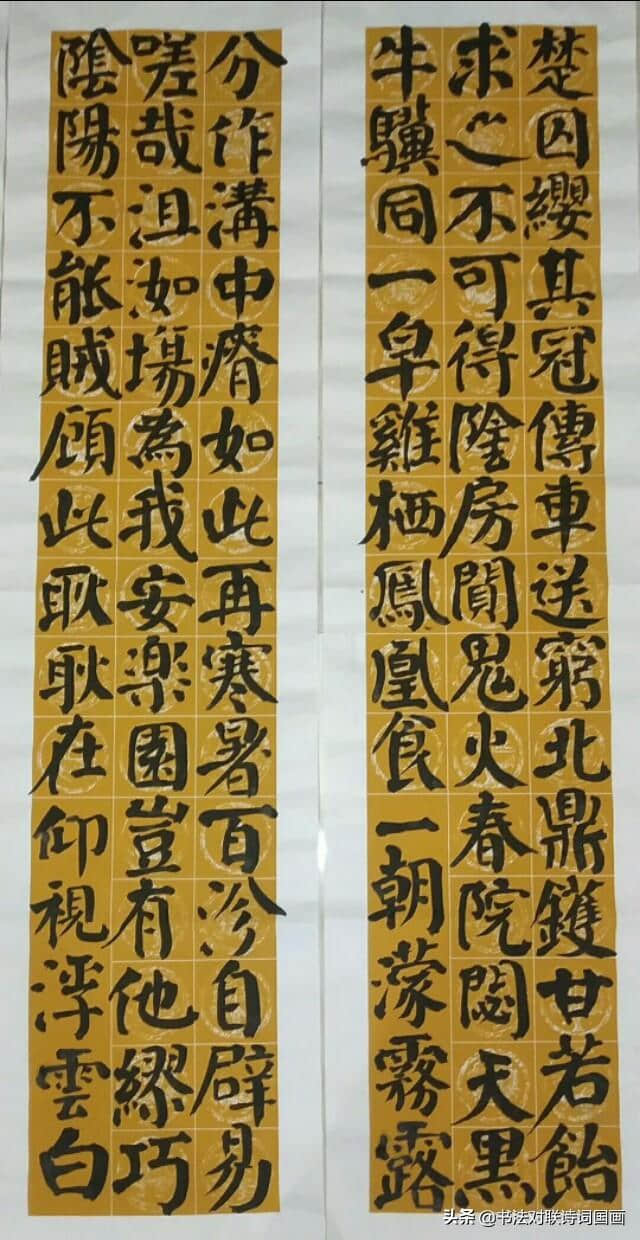 楚囚纓其冠傳車送窮北鼎鑊甘若飴
求之不可得陰房闃鬼火春院閟天黑
牛驥同一皁雞栖鳳凰食一朝濛霧露
分作溝中瘠如此再寒暑百沴自辟易
嗟哉沮洳場為我安楽園豈有他繆巧
陰陽不能賊顧此耿耿在仰視浮雲白
头条 @书法对联诗词国画